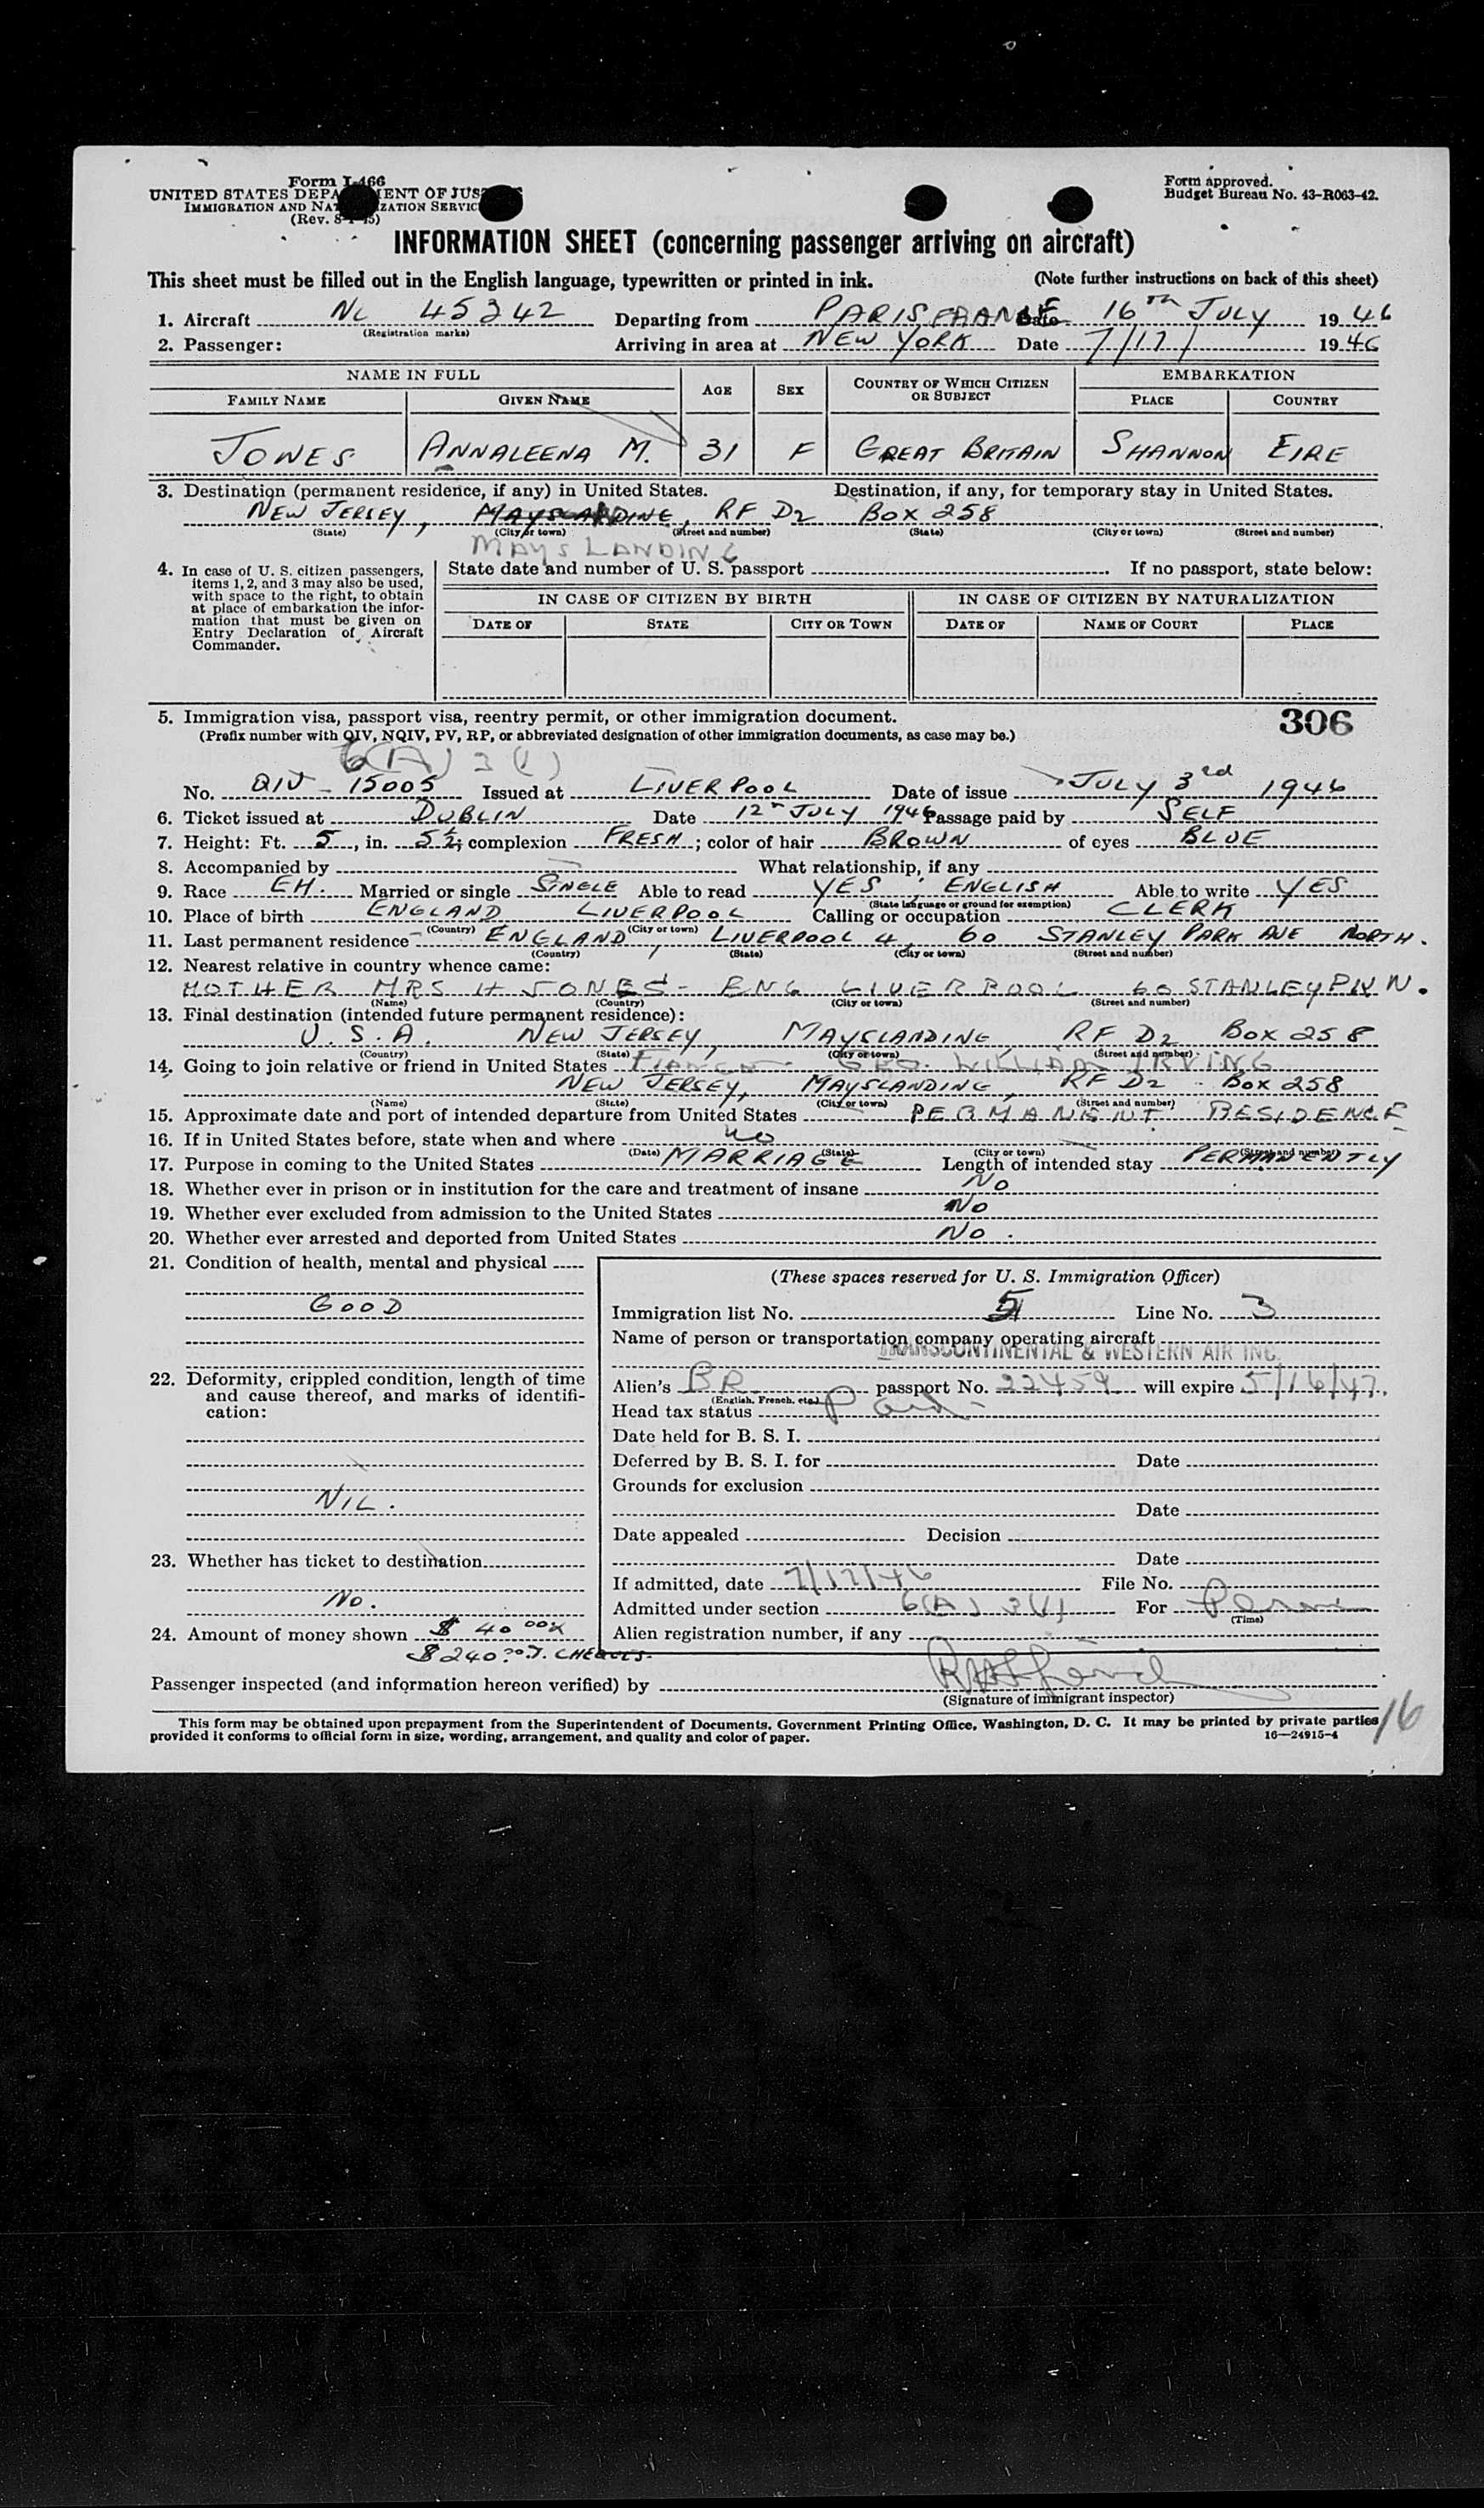 Form I-466
UNITED STATES DEPARTMENT OF JUSTICE
IMMIGRATION AND NATURALIZATION SERVICE
(Rev. 8-1-45)
Form approved.
Budget Bureau No. 43-R063-42.
INFORMATION SHEET (concerning passenger arriving on aircraft)
This sheet must be filled out in the English language, typewritten or printed in ink. (Note further instructions on back of this sheet)
1. Aircraft NC 45342 Departing from PARIS FRANCE Date 16th JULY 1946
(Registration marks)
2. Passenger: Arriving in area at NEW YORK Date 7/17/ 1946
NAME IN FULL AGE SEX COUNTRY OF WHICH CITIZEN OR SUBJECT EMBARKATION
FAMILY NAME GIVEN NAME PLACE COUNTRY
JONES ANNALEENA M. 31 F GREAT BRITAIN SHANNON EIRE
3. Destination (permanent residence, if any) in United States. Destination, if any, for temporary stay in United States.
NEW JERSEY, MAYSLANDING, RF D2 BOX 258
(State) (City or town) (Street and number) (State) (City or town) (Street and number)
MAYS LANDING
4. In case of U. S. citizen passengers, items 1, 2, and 3 may also be used, with space to the right, to obtain at place of embarkation the information that must be given on Entry Declaration of Aircraft Commander.
State date and number of U. S. passport If no passport, state below:
IN CASE OF CITIZEN BY BIRTH IN CASE OF CITIZEN BY NATURALIZATION
DATE OF STATE CITY OR TOWN DATE OF NAME OF COURT PLACE
5. Immigration visa, passport visa, reentry permit, or other immigration document. 306
(Prefix number with QIV, NQIV, PV, RP, or abbreviated designation of other immigration documents, as case may be.)
6(A) 3(1)
No. QIV - 15005 Issued at LIVERPOOL Date of issue JULY 3rd 1946
6. Ticket issued at DUBLIN Date 12th JULY 1946 Passage paid by SELF
7. Height: Ft. 5, in. 5½; complexion FRESH; color of hair BROWN of eyes BLUE
8. Accompanied by — What relationship, if any
9. Race EH. Married or single SINGLE Able to read YES, ENGLISH Able to write YES
(State language or ground for exemption)
10. Place of birth ENGLAND LIVERPOOL Calling or occupation CLERK
(Country) (City or town)
11. Last permanent residence ENGLAND, LIVERPOOL 4, 60 STANLEY PARK AVE NORTH.
(Country) (State) (City or town) (Street and number)
12. Nearest relative in country whence came:
MOTHER MRS H JONES - ENG LIVERPOOL 60 STANLEY PK N.
(Name) (Country) (City or town) (Street and number)
13. Final destination (intended future permanent residence):
U.S.A. NEW JERSEY, MAYSLANDING RF D2 BOX 258
(Country) (State) (City or town) (Street and number)
14. Going to join relative or friend in United States FIANCE - GEO. WILLIAM IRVING
NEW JERSEY, MAYSLANDING, RF D2 BOX 258
(Name) (State) (City or town) (Street and number)
15. Approximate date and port of intended departure from United States PERMANENT RESIDENCE
16. If in United States before, state when and where NO
(Date) (State) (City or town) (Street and number)
17. Purpose in coming to the United States MARRIAGE Length of intended stay PERMANENTLY
18. Whether ever in prison or in institution for the care and treatment of insane NO
19. Whether ever excluded from admission to the United States NO
20. Whether ever arrested and deported from United States NO.
21. Condition of health, mental and physical
GOOD
22. Deformity, crippled condition, length of time and cause thereof, and marks of identification:
NIL.
23. Whether has ticket to destination
NO.
24. Amount of money shown $ 40.00
$240.00 T. CHEQUES.
(These spaces reserved for U. S. Immigration Officer)
Immigration list No. 5 Line No. 3
Name of person or transportation company operating aircraft
TRANSCONTINENTAL & WESTERN AIR INC.
Alien's BR. passport No. 22459 will expire 5/16/47.
(English, French, etc.)
Head tax status Paid
Date held for B. S. I.
Deferred by B. S. I. for Date
Grounds for exclusion
Date
Date appealed Decision
Date
If admitted, date 7/17/46 File No.
Admitted under section 6(A) 3(1) For Perm
(Time)
Alien registration number, if any
Passenger inspected (and information hereon verified) by
(Signature of immigrant inspector)
This form may be obtained upon prepayment from the Superintendent of Documents, Government Printing Office, Washington, D. C. It may be printed by private parties
provided it conforms to official form in size, wording, arrangement, and quality and color of paper. 16—24915-4
16